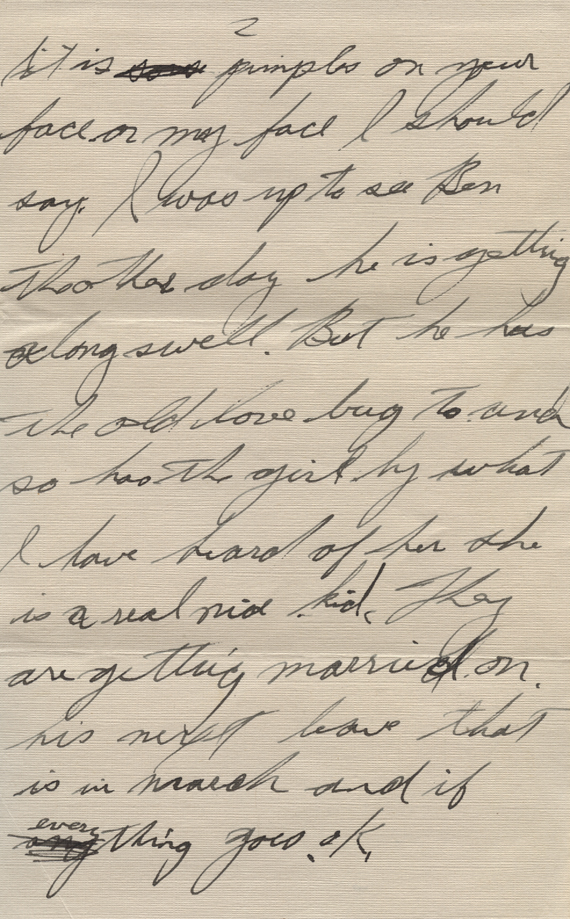 2
it is pimples on your
face or my face I should
say. I was up to see Ben
tho other day he is getting
along swell. But he has
the old love bug to and
so has th girl by what
I have heard of her she
is a real nice kid. They
are getting married on.
his next leave that
is in march and if
everything goes. ok.